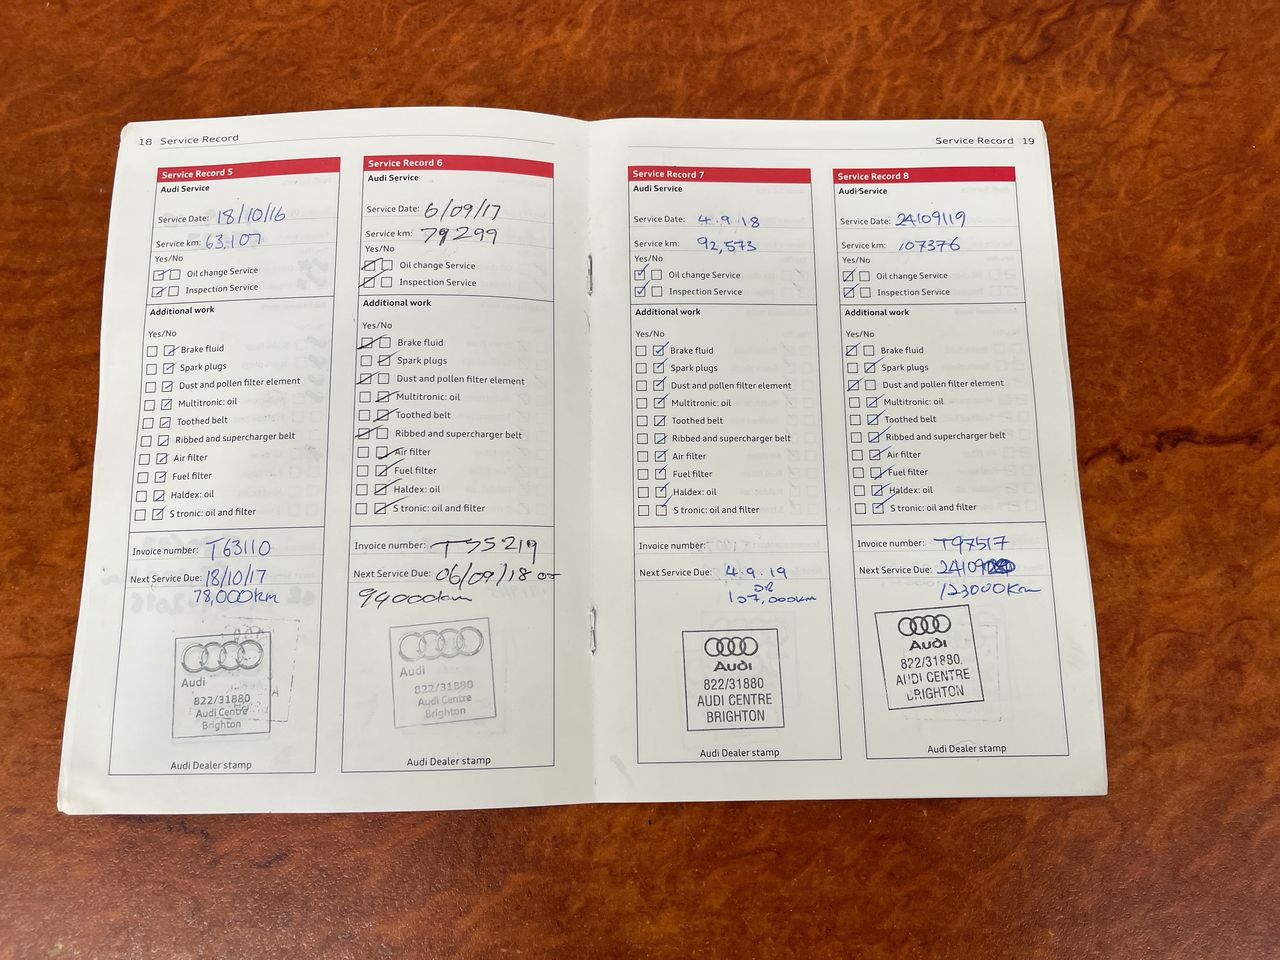 18 Service Record
Service Record 5
Audi Service
Service Date: 18/10/16
Service km: 63,107
Yes/No
Oil change Service
Inspection Service
Additional work
Yes/No
Brake fluid
Spark plugs
Dust and pollen filter element
Multitronic: oil
Toothed belt
Ribbed and supercharger belt
Air filter
Fuel filter
Haldex: oil
S tronic: oil and filter
Invoice number: T63110
Next Service Due: 18/10/17
78,000km
Audi
822/31880
Audi Centre
Brighton
Audi Dealer stamp
Service Record 6
Audi Service
Service Date: 6/09/17
Service km: 79299
Yes/No
Oil change Service
Inspection Service
Additional work
Yes/No
Brake fluid
Spark plugs
Dust and pollen filter element
Multitronic: oil
Toothed belt
Ribbed and supercharger belt
Air filter
Fuel filter
Haldex: oil
S tronic: oil and filter
Invoice number:
Next Service Due: 06/09/18 or
94000km
Audi
822/31880
Audi Centre
Brighton
Audi Dealer stamp
Service Record 19
Service Record 7
Audi Service
Service Date: 4.9.18
Service km: 92,573
Yes/No
Oil change Service
Inspection Service
Additional work
Yes/No
Brake fluid
Spark plugs
Dust and pollen filter element
Multitronic: oil
Toothed belt
Ribbed and supercharger belt
Air filter
Fuel filter
Haldex: oil
S tronic: oil and filter
Invoice number:
Next Service Due: 4.9.19
OR
107,000km
Audi
822/31880
AUDI CENTRE
BRIGHTON
Audi Dealer stamp
Service Record 8
Audi Service
Service Date: 24/09/19
Service km: 107376
Yes/No
Oil change Service
Inspection Service
Additional work
Yes/No
Brake fluid
Spark plugs
Dust and pollen filter element
Multitronic: oil
Toothed belt
Ribbed and supercharger belt
Air filter
Fuel filter
Haldex: oil
S tronic: oil and filter
Invoice number: T97517
Next Service Due:
123000Km
Audi
822/31880.
AUDI CENTRE
BRIGHTON
Audi Dealer stamp